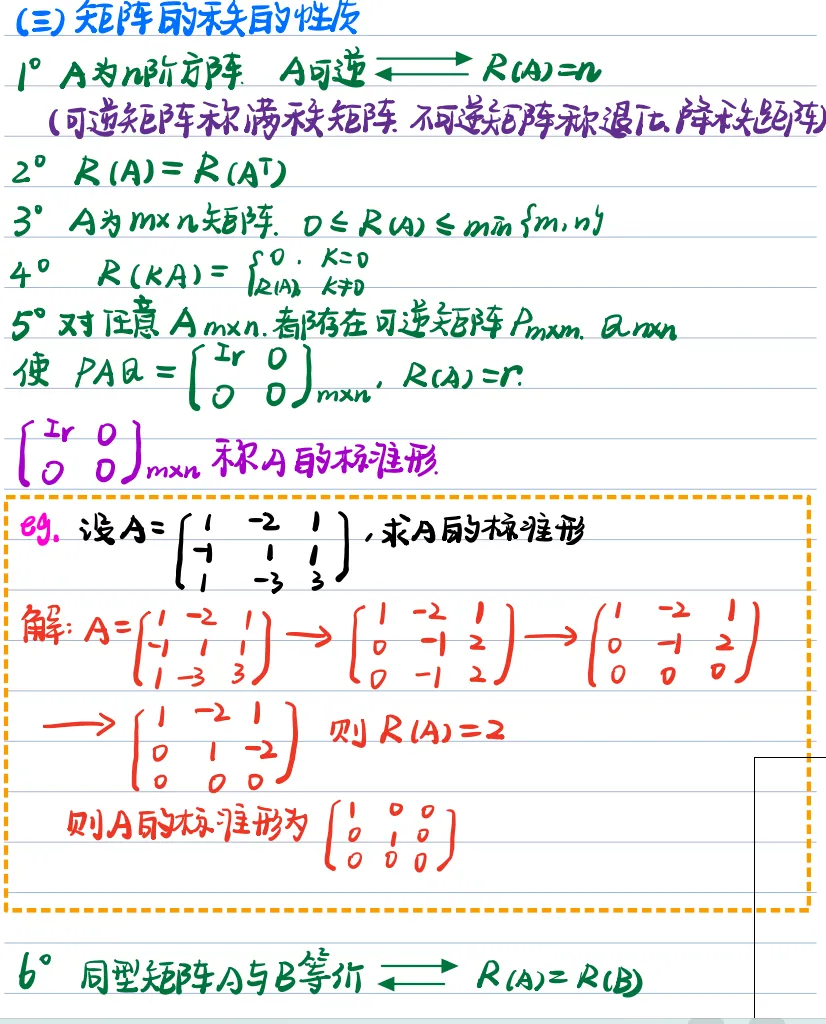 (三) 矩阵的秩的性质
1° A为n阶方阵. A可逆 ⇄ R(A)=n
(可逆矩阵称满秩矩阵. 不可逆矩阵称退化.降秩矩阵)
2° R(A)=R(Aᵀ)
3° A为m×n矩阵. 0≤R(A)≤min{m,n}
4° R(KA)= { 0 , K=0
R(A), K≠0
5° 对任意Am×n.都存在可逆矩阵Pm×m. Qn×n
使 PAQ = [Ir 0
0 0]m×n, R(A)=r.
[Ir 0
0 0]m×n 称A的标准形.
eg. 设A= [1 -2 1
-1 1 1
1 -3 3] ,求A的标准形
解: A= [1 -2 1 → [1 -2 1 → [1 -2 1
-1 1 1 0 -1 2 0 -1 2
1 -3 3] 0 -1 2] 0 0 0]
→ [1 -2 1
0 1 -2
0 0 0] 则 R(A)=2
则A的标准形为 [1 0 0
0 1 0
0 0 0]
6° 同型矩阵A与B等价 ⇄ R(A)=R(B)